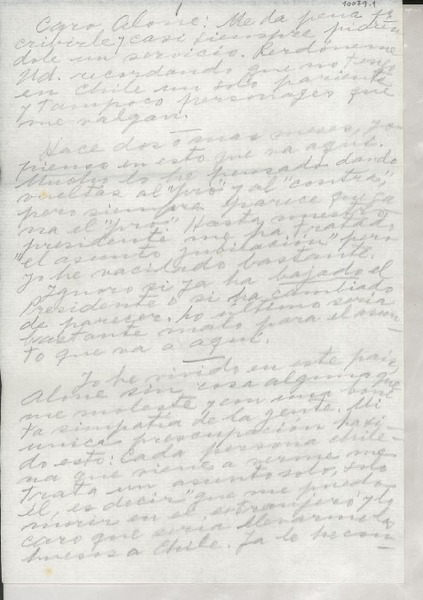 1
10029.1
Caro Alone: Me da pena es-
cribirle y casi siempre pidién-
dole un servicio. Perdóneme
Ud. recordando que no tengo
en Chile un solo pariente
y tampoco personajes que
me valgan.
Hace dos o mas meses, yo
pienso en esto que va aquí.
Mucho lo he pensado dando
vueltas al "pro" y al "contra",
pero siempre parece que ga-
na el "pro". Hasta nuestro
presidente me ha tratado
"el asunto jubilación" pero
yo he vacilado bastante.
Ignoro si ya ha bajado el
Presidente o si ha cambiado
de parecer. Lo último sería
bastante malo para el asun-
to que va aquí.
Yo he vivido en este país,
Alone sin cosa alguna que
me moleste y con una
ta simpatía de la gente. Mi
unica preocupación ha si-
do esto: Cada persona chile-
na que viene a verme me
trata un asunto solo, solo
él, es decir "que me puedo
morir en el extranjero y lo
caro que sería llevar mis
huesos a Chile. Ya lo he con-